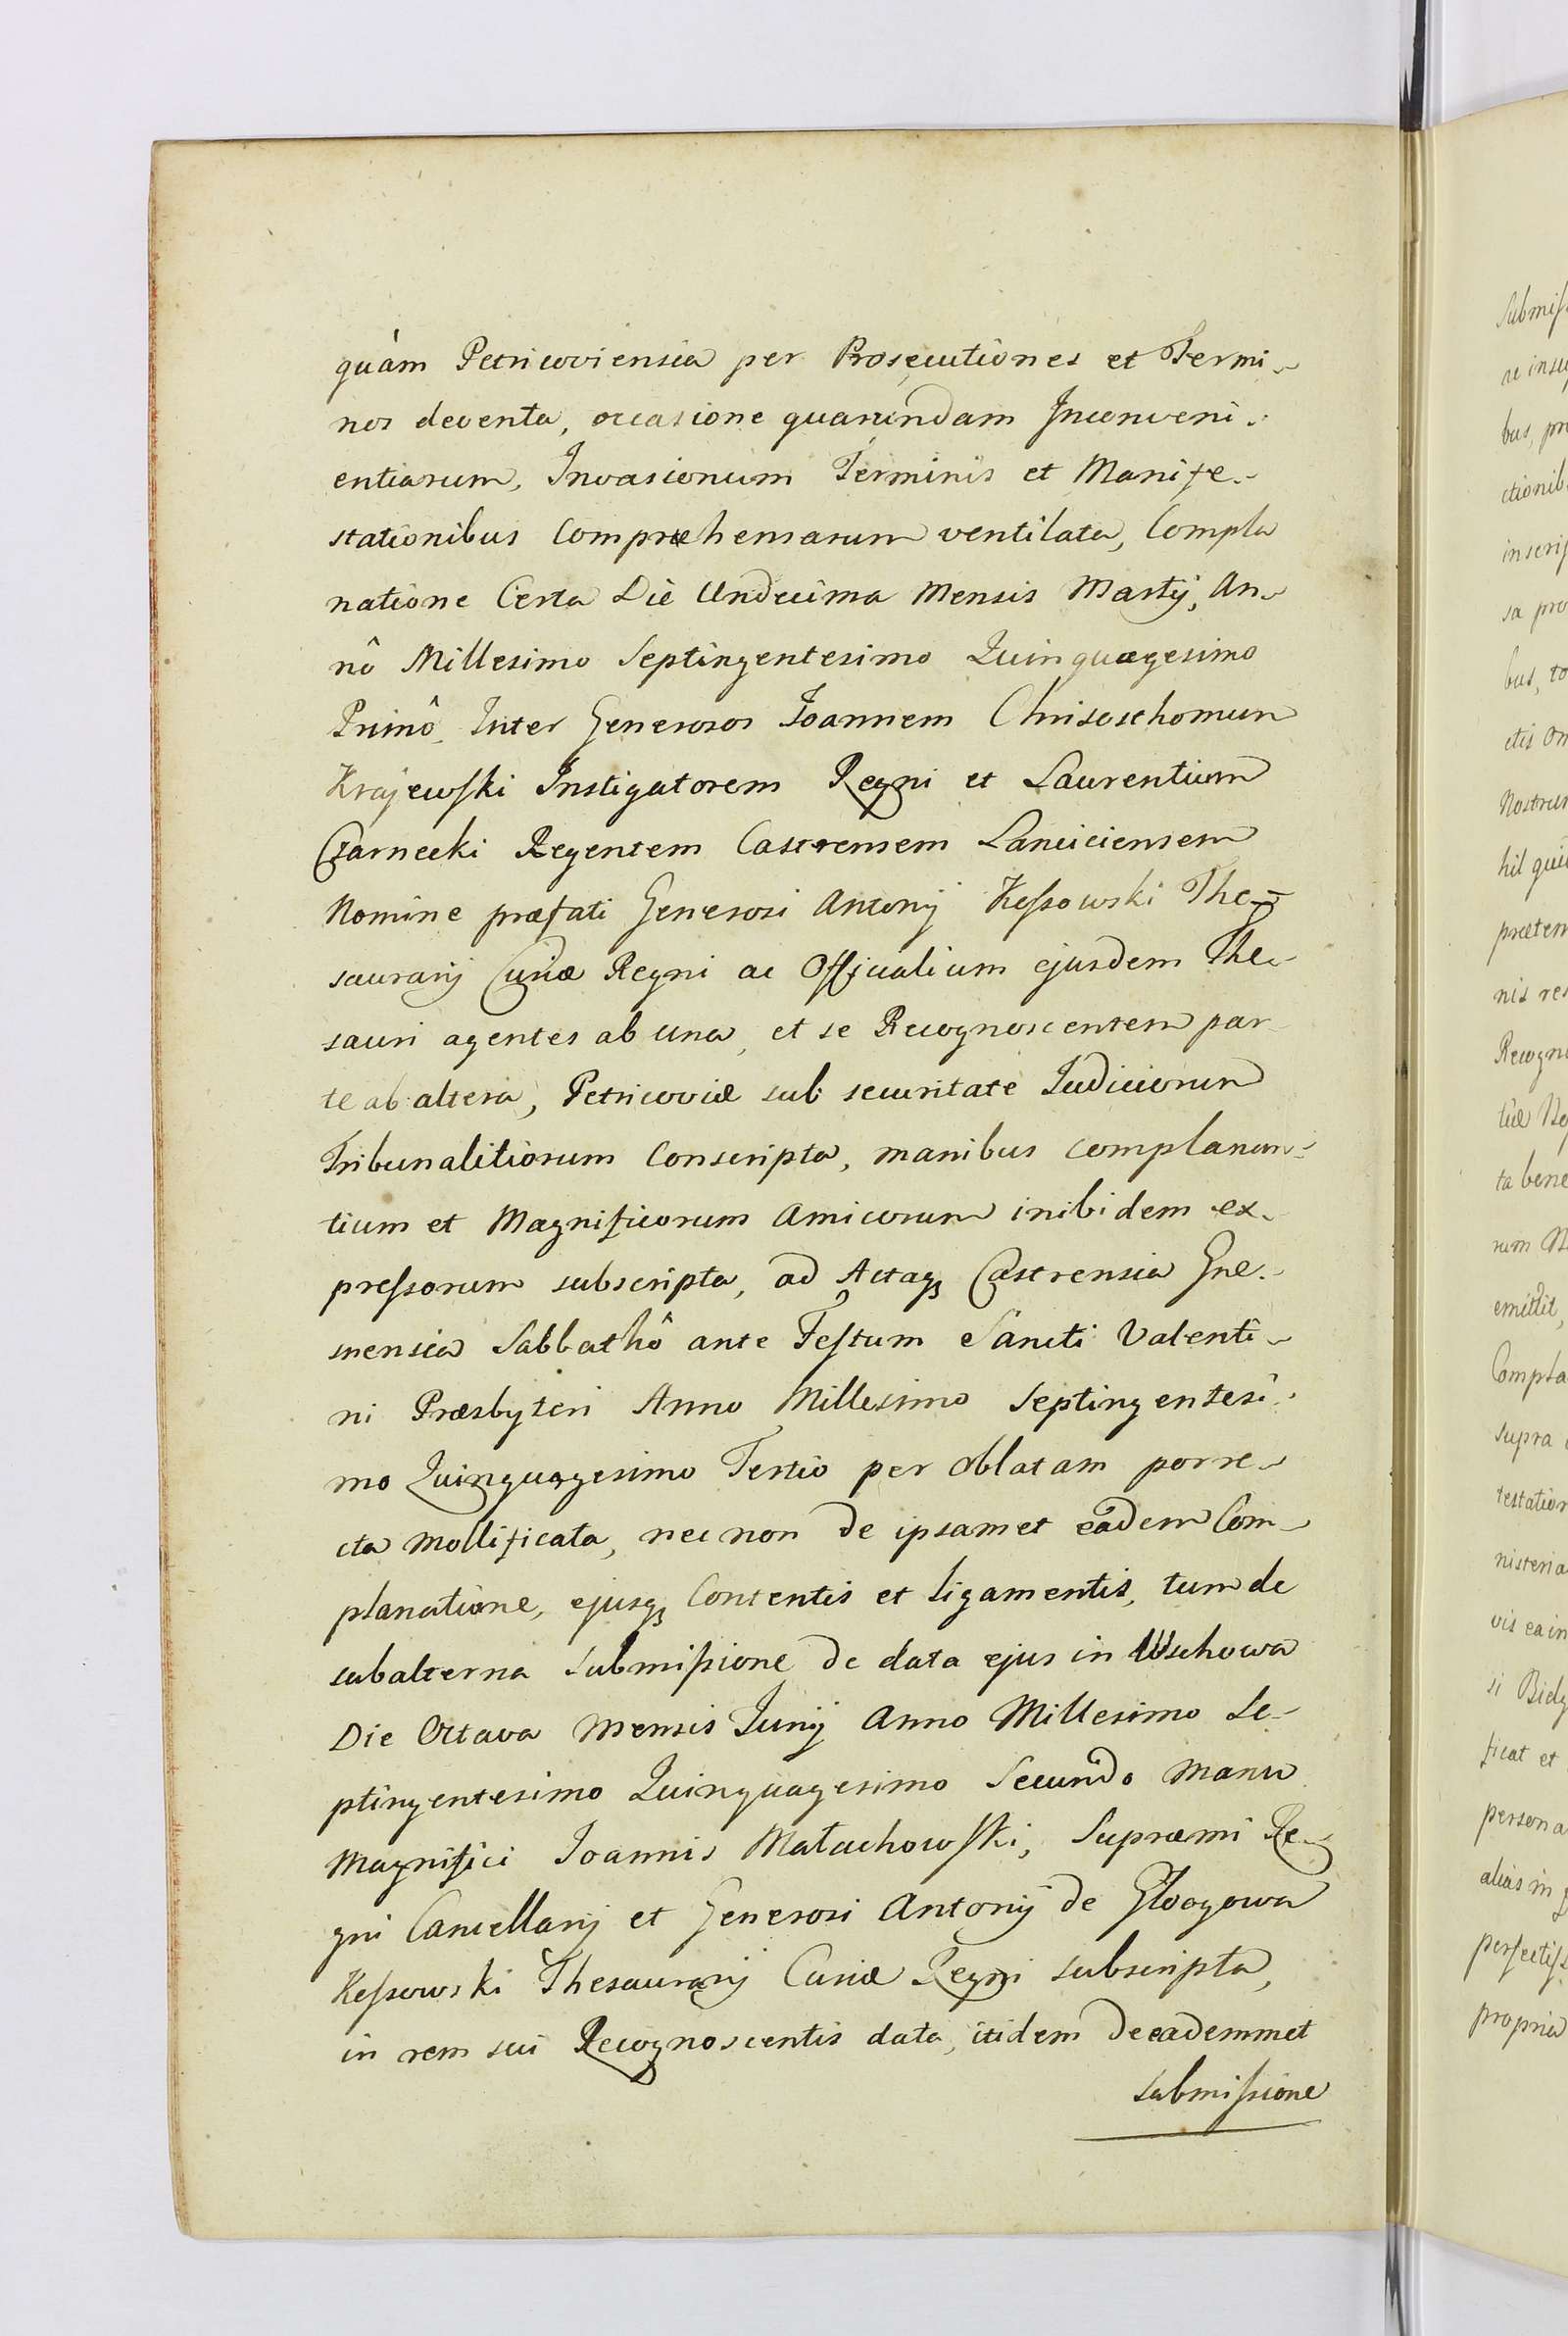 quàm Petricoviensia per Prosecutiones et Termi-
nos deventa, occasione quarundam Inconveni-
entiarum, Invasionum Terminis et Manife-
stationibus Compræhensarum ventilata, Compla
natione Certa Die Undecima Mensis Martij, An-
nô Millesimo Septingentesimo Quinquagesimo
Primô Inter Generosos Joannem Chrisoschomum
Krajewski Instigatorem Regni et Laurentium
Czarnecki Regentem Castrensem Lanciciensem
Nomine præfati Generosi Antonij Kessowski The-
saurarij Curiæ Regni ac Officialium ejusdem The-
sauri agentes ab una, et se Recognoscentem par
te ab altera, Petricoviæ sub securitate Judiciorum
Tribunalitiorum Conscripta, manibus complanan-
tium et Magnificorum Amicorum inibidem ex-
pressorum subscripta, ad Actaq Castrensia Gne-
snensia Sabbathô ante Festum Sancti Valenti-
ni Præsbyteri Anno Millesimo Septingentesi-
mo Quinquagesimo Tertio per oblatam porre-
cta Mollificata, nec non de ipsamet eâdem Com-
planatione, ejusq Contentis et ligamentis, tum de
subalterna Submissione de data ejus in Wschowa
Die Octava Mensis Junij Anno Millesimo Se-
ptingentesimo Quinquagesimo Secundo Manu
Magnifici Joannis Małachowski, Supræmi Re-
gni Cancellarij et Generosi Antonij de Głoogowa
Kessowski Thesaurarij Curiæ Regni subscripta,
in rem sui Recognoscentis data, itidem de eademmet
submissione